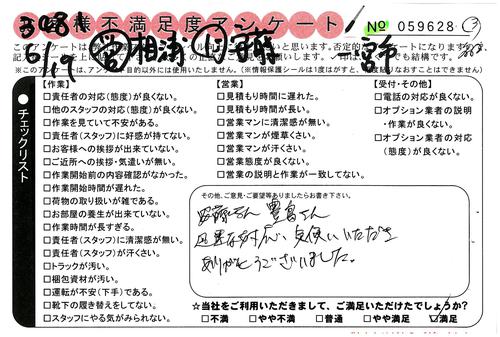 お客様不満足度アンケート
№ 059628
【作業】
□責任者の対応(態度)が良くない。
□他のスタッフの対応(態度)が良くない。
□作業を見ていて不安がある。
□責任者(スタッフ)に好感が持てない。
□お客様への挨拶が出来ていない。
□ご近所への挨拶・気遣いが無い。
□作業開始前の内容確認がなかった。
□作業開始時間が遅れた。
□荷物の取り扱いが雑である。
□お部屋の養生が出来ていない。
□作業時間が長すぎる。
□責任者(スタッフ)に清潔感が無い。
□責任者(スタッフ)が汗くさい。
□トラックが汚い。
□梱包資材が汚い。
□運転が不安(下手)である。
□靴下の履き替えをしてない。
□スタッフにやる気がみられない。
【営業】
□見積もり時間に遅れた。
□見積もり時間が長い。
□営業マンに清潔感が無い。
□営業マンが煙草くさい。
□営業マンが汗くさい。
□営業態度が良くない。
□営業の説明と作業が一致してない。
【受付・その他】
□電話の対応が良くない。
□オプション業者の説明
・作業が良くない。
□オプション業者の対応
(態度)が良くない。
チェックリスト
その他、ご意見・ご要望等ありましたらお書き下さい。
豊島さん
ありがとうございました。
☆当社をご利用いただきまして、ご満足いただけたでしょうか?
□不満 □やや不満 □普通 □やや満足 □満足